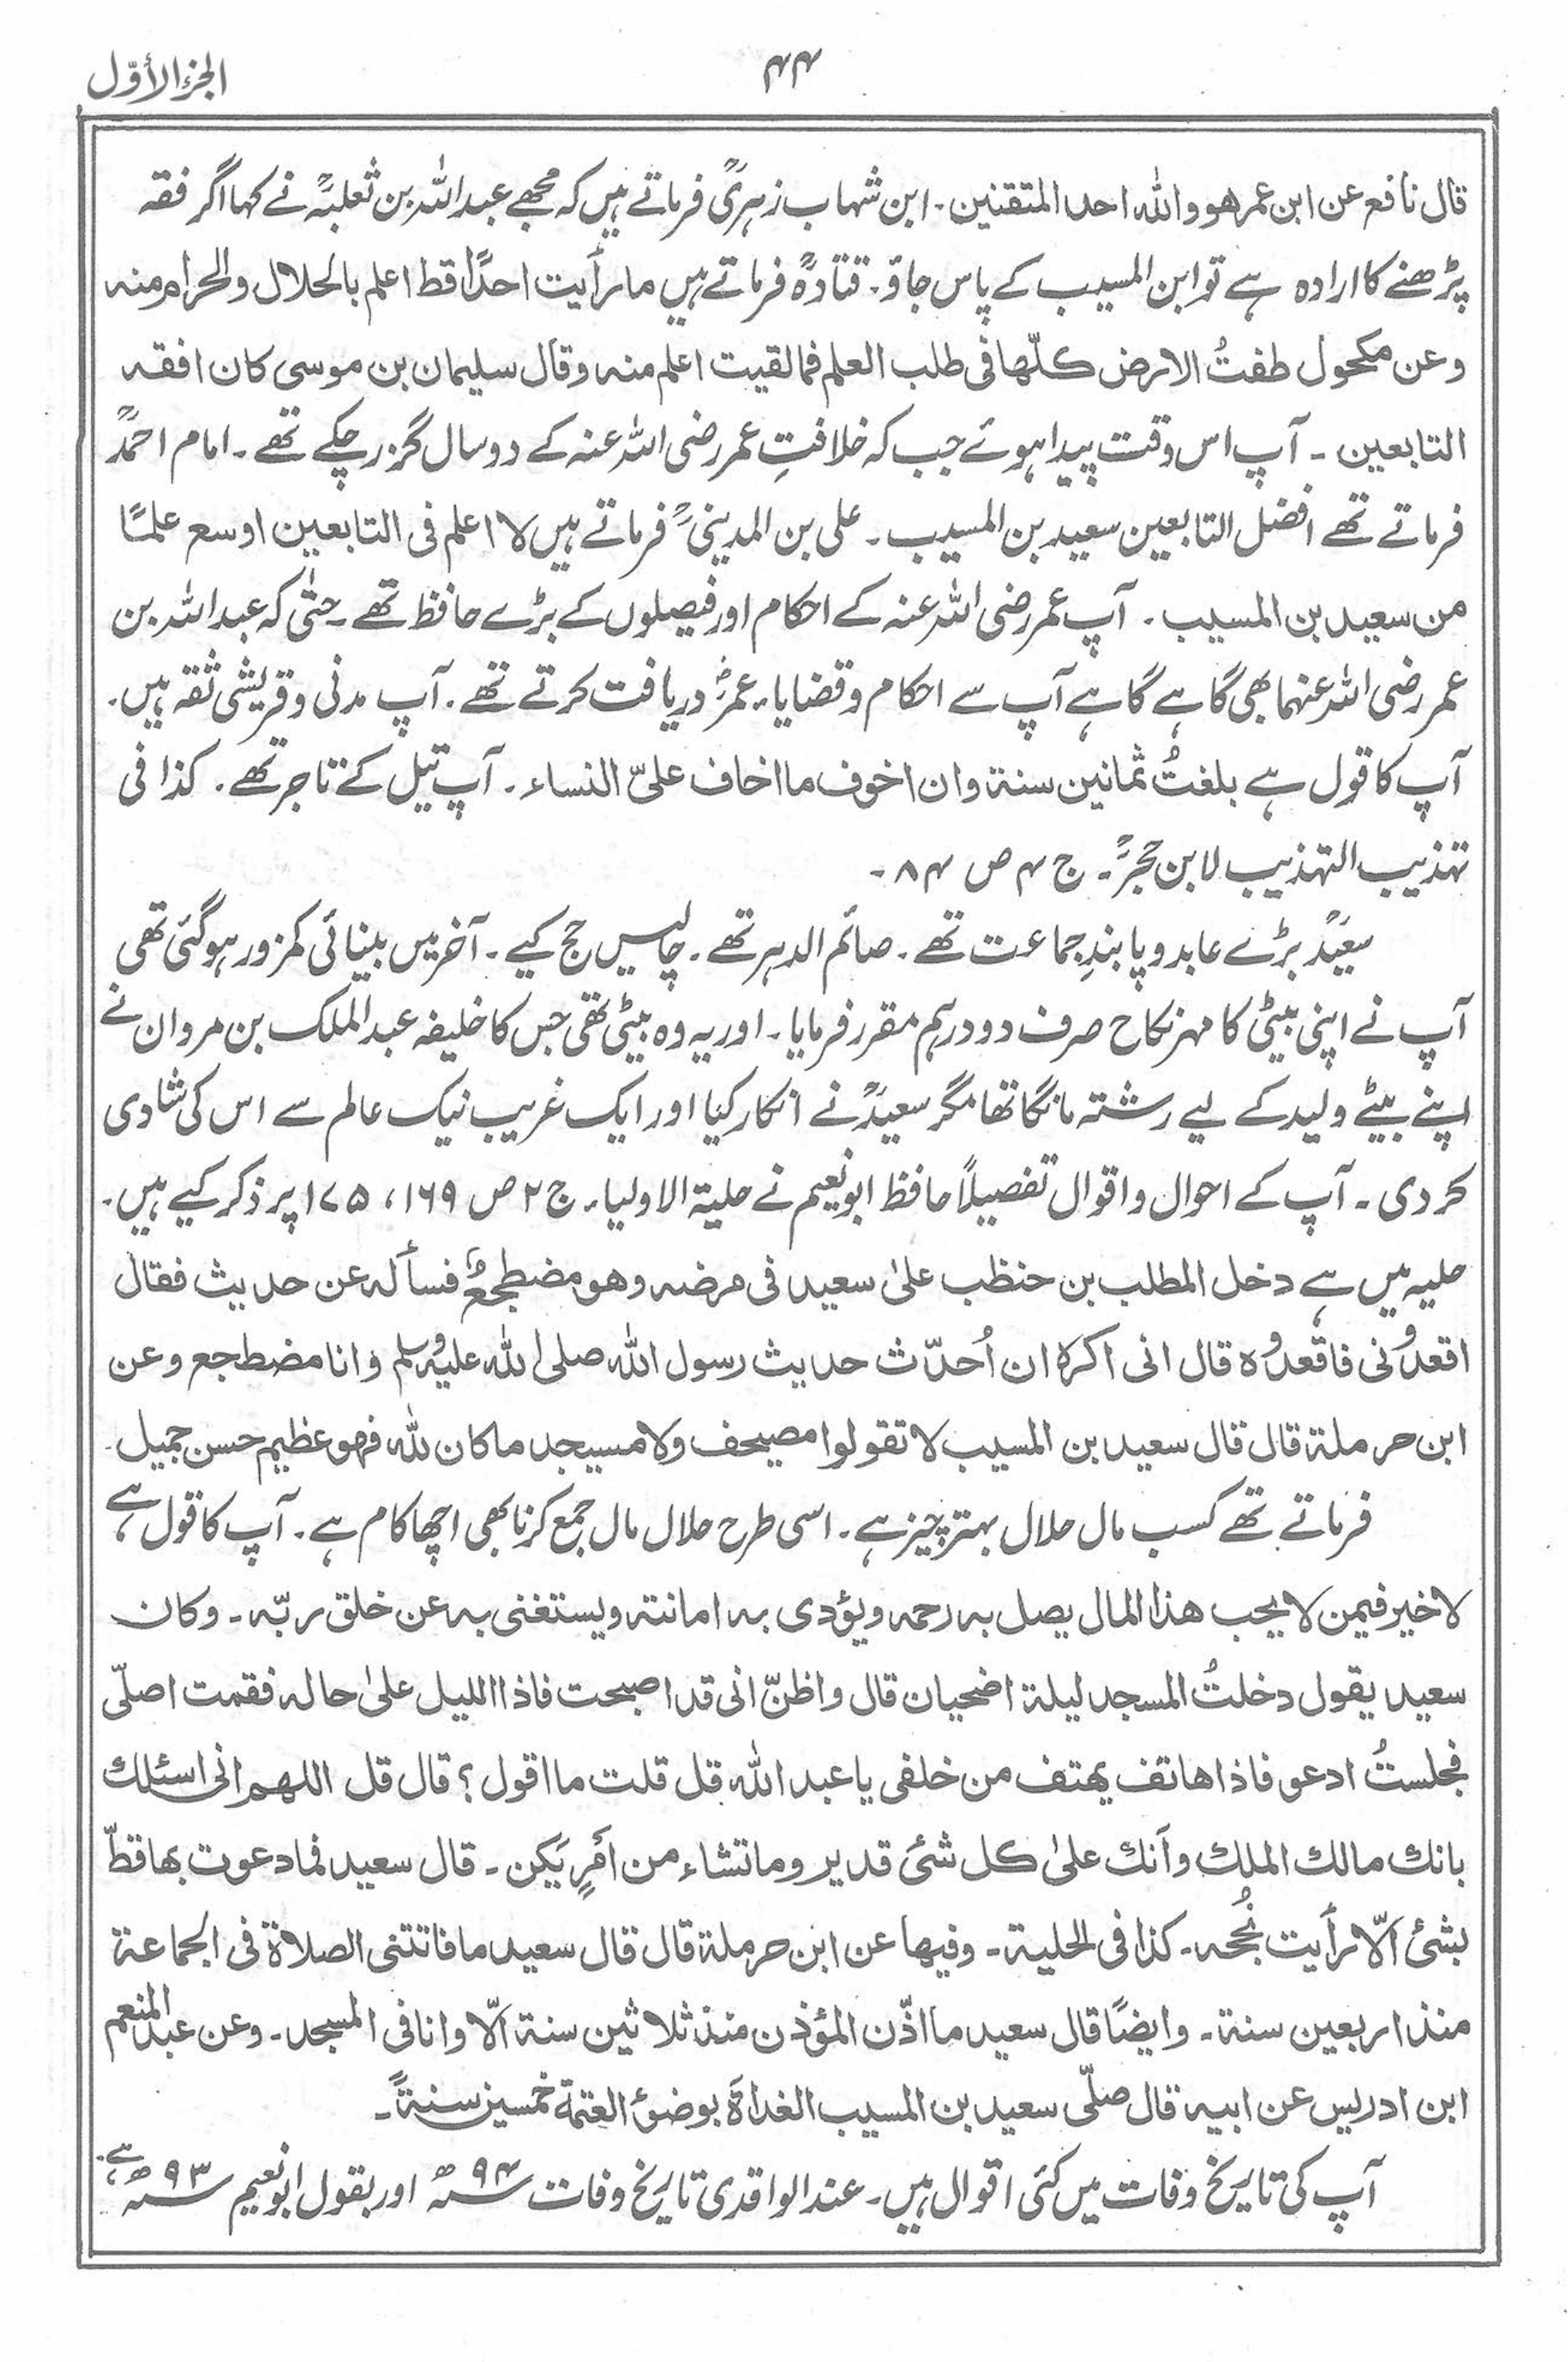 الجزء الأوّل
۴۴
قال نافع عن ابن عمر هو والله احد المتقنین ۔ ابن شہاب زہریؒ فرماتے ہیں کہ مجھے عبداللہ بن ثعلبہؒ نے کہا اگر فقہ
پڑھنے کا ارادہ ہے تو ابن المسیب کے پاس جاؤ ۔ قتادہؒ فرماتے ہیں ما رأیت احدًا قط اعلم بالحلال والحرام منه
وعن مکحول طفتُ الارض کلّها فی طلب العلم فما لقیت اعلم منه وقال سلیمان بن موسی کان افقه
التابعین ۔ آپ اس وقت پیدا ہوئے جب کہ خلافتِ عمر رضی اللہ عنہ کے دو سال گزر چکے تھے ۔ امام احمدؒ
فرماتے تھے افضل التابعین سعید بن المسیب ۔ علی بن المدینیؒ فرماتے ہیں لا اعلم فی التابعین اوسع علمًا
من سعید بن المسیب ۔ آپ عمر رضی اللہ عنہ کے احکام اور فیصلوں کے بڑے حافظ تھے ۔ حتیٰ کہ عبداللہ بن
عمر رضی اللہ عنہما بھی گاہے گاہے آپ سے احکام وقضایاء عمرؓ دریافت کرتے تھے ۔ آپ مدنی وقریشی ثقہ ہیں ۔
آپ کا قول ہے بلغتُ ثمانین سنة وان اخوف ما اخاف علیّ النساء ۔ آپ تیل کے تاجر تھے ۔ کذا فی
تہذیب التہذیب لابن حجرؒ ۔ ج ۴ ص ۸۴ ۔
سعیدؒ بڑے عابد وپابندِ جماعت تھے ۔ صائم الدہر تھے ۔ چالیس حج کیے ۔ آخر میں بینائی کمزور ہوگئی تھی
آپ نے اپنی بیٹی کا مہر نکاح صرف دو درہم مقرر فرمایا ۔ اور یہ وہ بیٹی تھی جس کا خلیفہ عبدالملک بن مروان نے
اپنے بیٹے ولید کے لیے رشتہ مانگا تھا مگر سعیدؒ نے انکار کیا اور ایک غریب نیک عالم سے اس کی شادی
کردی ۔ آپ کے احوال واقوال تفصیلاً حافظ ابونعیم نے حلیۃ الاولیاء ج ۲ ص ۱۶۹، ۱۷۵ پر ذکر کیے ہیں ۔
حلیہ میں ہے دخل المطلب بن حنظب علیٰ سعید فی مرضه وهو مضطجعٌ فسأله عن حدیث فقال
اقعدُونی فاقعدُوه قال انی اکره ان اُحدّث حدیث رسول الله صلی الله علیه وسلم وانا مضطجع وعن
ابن حرملة قال قال سعید بن المسیب لا تقولوا مصیحف ولا مسیجد ما کان لله فهو عظیم حسن جمیل ۔
فرماتے تھے کسب مال حلال بہتر چیز ہے ۔ اسی طرح حلال مال جمع کرنا بھی اچھا کام ہے ۔ آپ کا قول ہے
لا خیر فیمن لا یحب هذا المال یصل به رحمه ویؤدی به امانته ویستغنی به عن خلق ربّه ۔ وکان
سعید یقول دخلتُ المسجد لیلة اضحیان قال واظنّ انی قد اصبحت فاذا اللیل علیٰ حاله فقمت اصلّی
فجلستُ ادعو فاذا هاتف یهتف من خلفی یا عبد الله قل قلت ما اقول ؟ قال قل اللهم انی اسئلك
بانك مالك الملك وأنك علیٰ کل شیٔ قدیر وما تشاء من أمرٍ یکن ۔ قال سعید فما دعوت بها قطّ
بشیٔ الّا رأیت نُجحه ۔ کذا فی الحلیة ۔ وفیها عن ابن حرملة قال قال سعید ما فاتتنی الصلاة فی الجماعة
منذ اربعین سنة ۔ وایضًا قال سعید ما اذّن المؤذن منذ ثلاثین سنة الّا وانا فی المسجد ۔ وعن عبد المنعم
ابن ادریس عن ابیه قال صلّی سعید بن المسیب الغداة بوضؤ العتمة خمسین سنةً ۔
آپ کی تاریخ وفات میں کئی اقوال ہیں ۔ عند الواقدی تاریخ وفات سنہ ۹۴ھ اور بقول ابونعیم سنہ ۹۳ھ ہے ۔